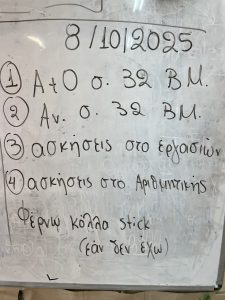 8/10/2025
① Α+Ο σ. 32 Β.Μ.
② Αν. σ. 32 Β.Μ.
③ ασκήσεις στο εργασιών
④ ασκήσεις στο Αριθμητικής
Φέρνω κόλλα stick
(εάν δεν έχω)